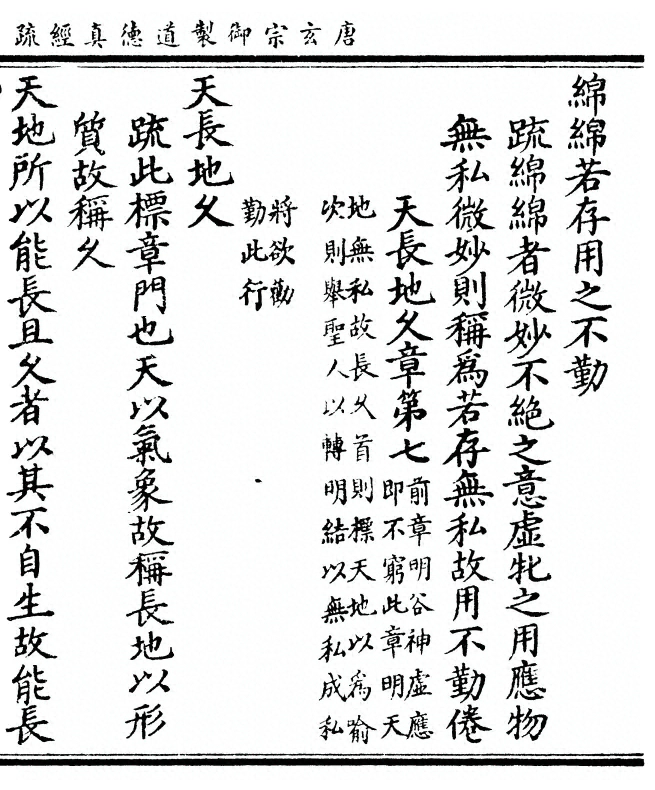 唐玄宗御製道德真經疏
綿綿若存用之不勤
疏綿綿者微妙不絶之意虛牝之用應物
無私微妙則稱爲若存無私故用不勤倦
天長地久章第七
前章明谷神虛應
即不窮此章明天
地無私故長久首則標天地以爲喻
次則舉聖人以轉明結以無私成私
將欲勸
勤此行
天長地久
疏此標章門也天以氣象故稱長地以形
質故稱久
天地所以能長且久者以其不自生故能長